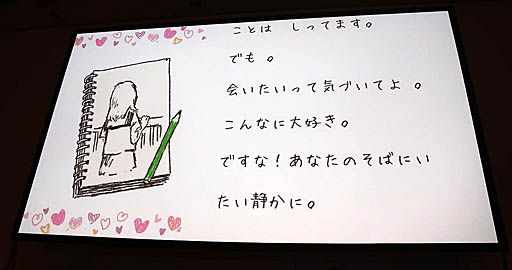 ことは しってます。
でも。
会いたいって気づいてよ。
こんなに大好き。
ですな!あなたのそばにい
たい静かに。